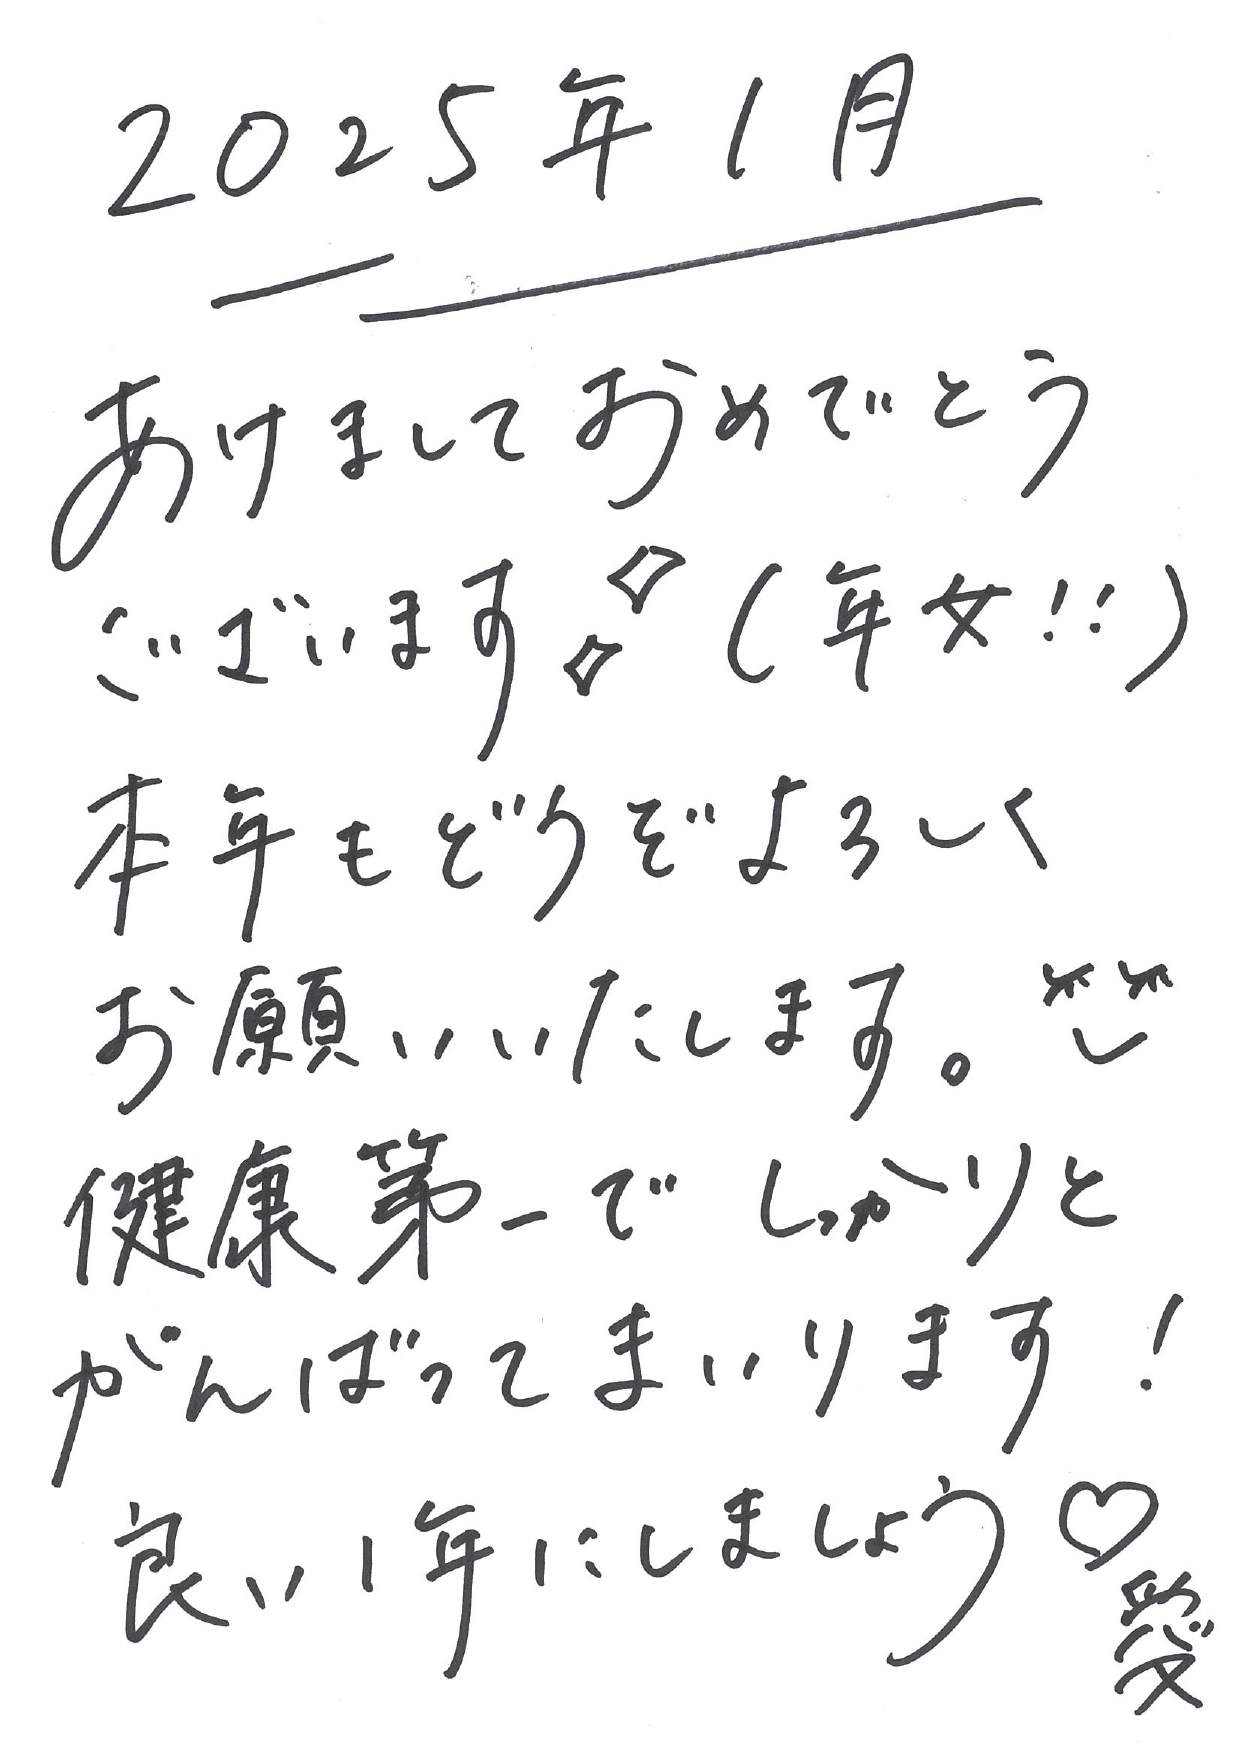 2025年1月
あけましておめでとう
ございます（年女!!）
本年もどうぞよろしく
お願いいたします。
健康第一でしっかりと
がんばってまいります！
良い1年にしましょう♡
愛